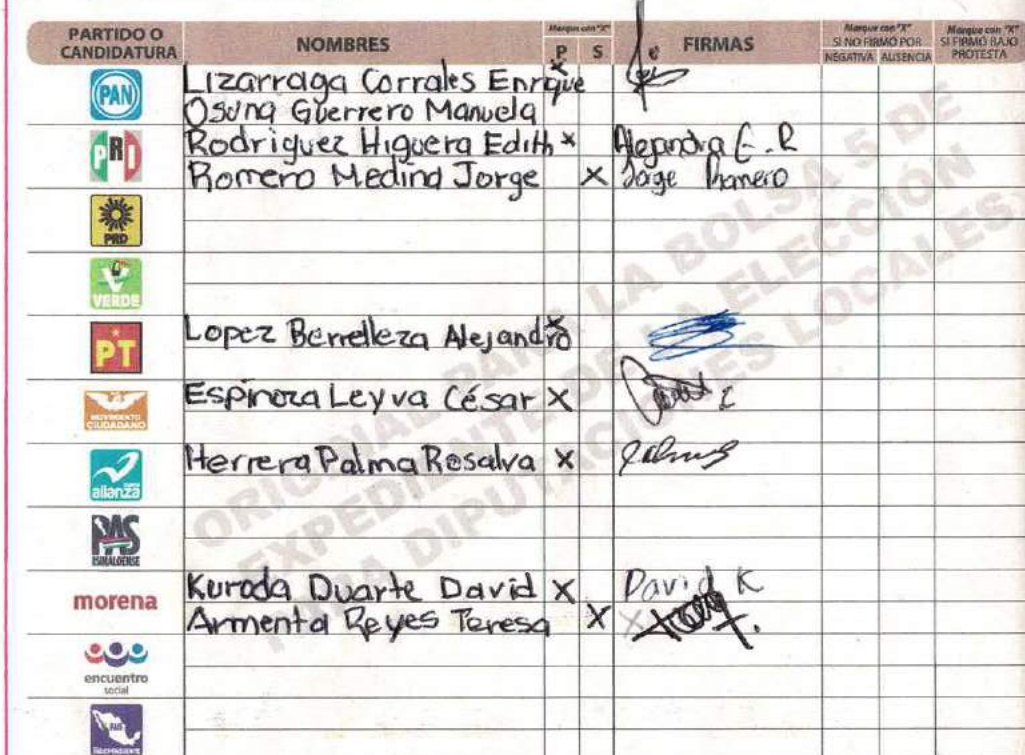 PARTIDO O CANDIDATURA
NOMBRES
Marque con "X"
P S
FIRMAS
Marque con "X"
SI NO FIRMÓ POR
NEGATIVA AUSENCIA
Marque con "X"
SI FIRMÓ BAJO PROTESTA
PAN Lizarraga Corrales Enrique x
Osuna Guerrero Manuela
PRI Rodriguez Higuera Edith x Alejandra E. R
Romero Medina Jorge X Jorge Romero
PRD
VERDE
PT Lopez Berrelleza Alejandro x
MOVIMIENTO CIUDADANO Espinoza Leyva César X
alianza Herrera Palma Rosalva X
PAS
SINALOENSE
morena Kuroda Duarte David X David K
Armenta Reyes Teresa X X
encuentro
social
ORIGINAL PARA LA BOLSA 5 DE
EXPEDIENTE DE LA ELECCIÓN
PARA DIPUTACIONES LOCALES